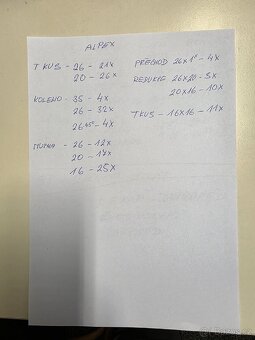 ALPEX
T KUS - 26 - 21x
20 - 26x
KOLENO - 35 - 4x
26 - 32x
26 45° - 4x
MUFNA - 26 - 12x
20 - 17x
16 - 25x
PRECHOD 26x1" - 4x
REDUKCIA 26x20 - 5x
20x16 - 10x
T KUS - 16x16 - 11x